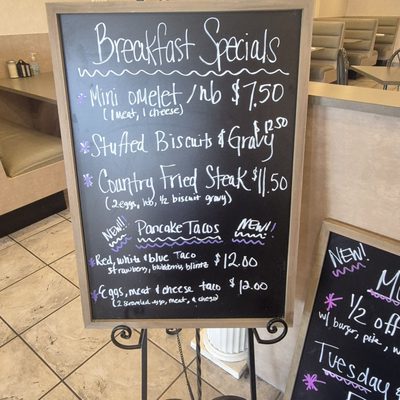 Breakfast Specials
Mini omelet / hb $7.50
(1 meat, 1 cheese)
$12.50
Stuffed Biscuits & Gravy
Country Fried Steak $11.50
(2 eggs, hb, ½ biscuit gravy)
NEW!! Pancake Tacos NEW!
Red, white & blue Taco $12.00
strawberry, blueberry, blintz
Eggs, meat & cheese taco $12.00
(2 scrambled eggs, meat, & cheese)
NEW!
½ off
w/ burger,
Tuesday